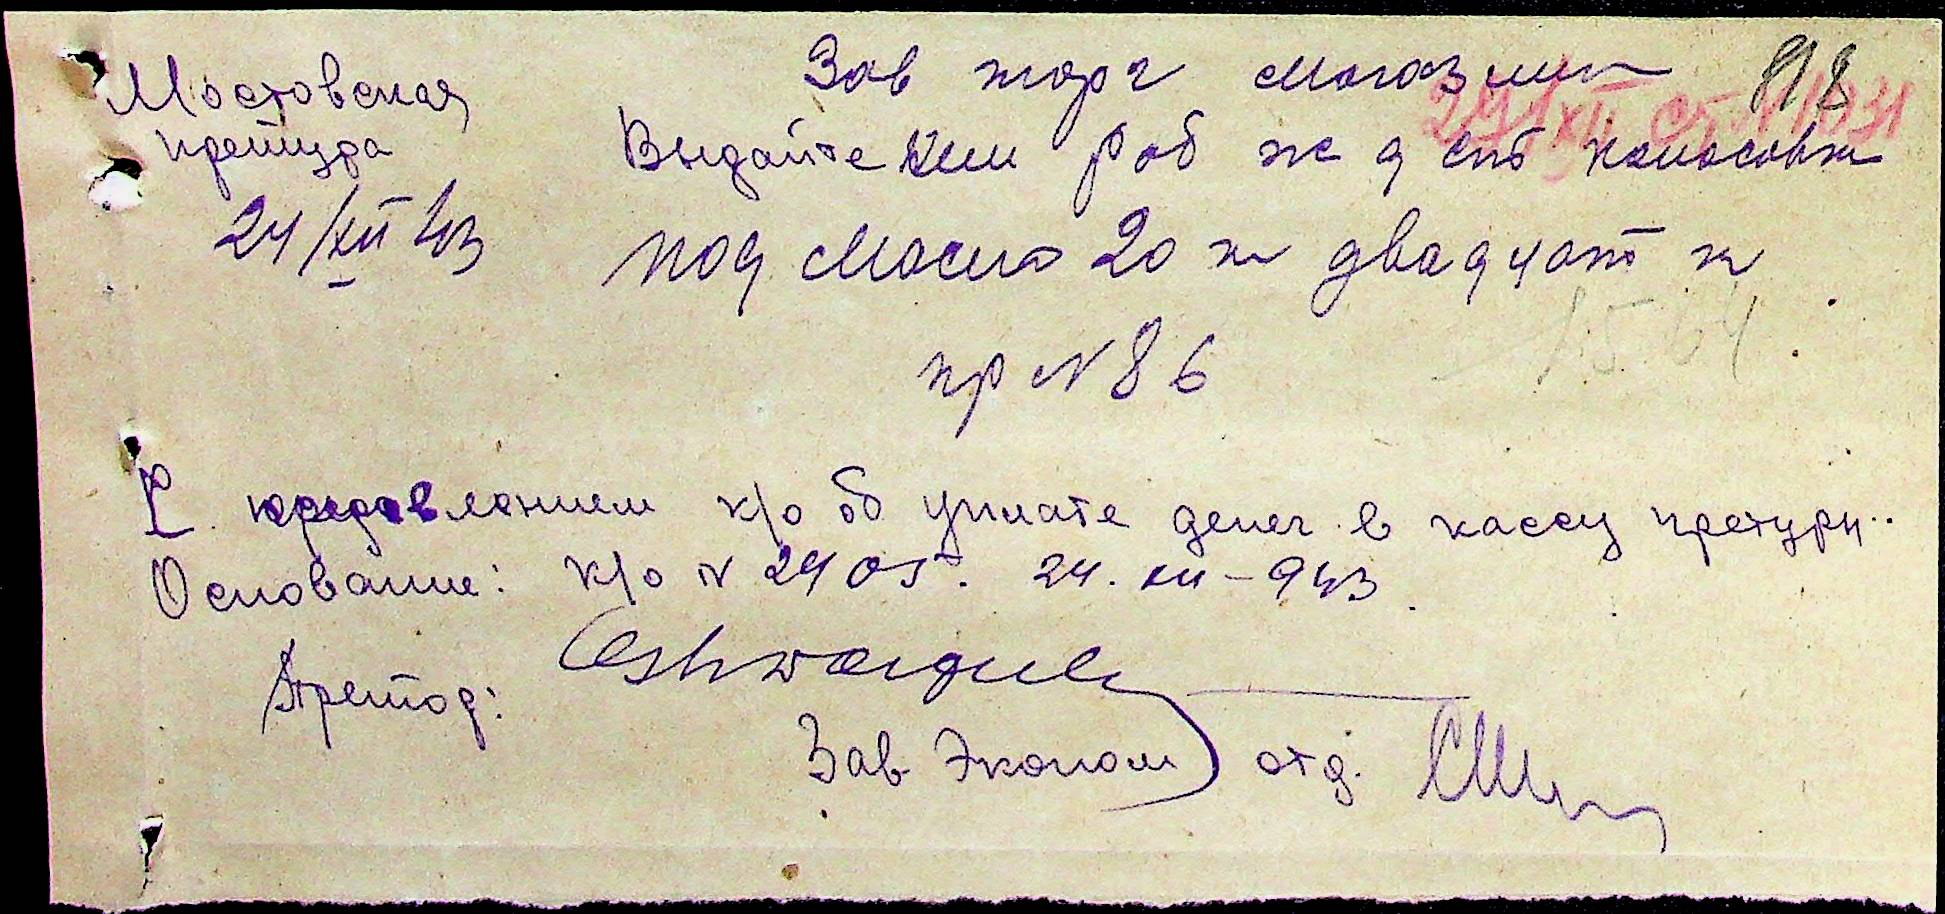 Мостовская
претура
24/XII 43
898
Зав торг магазин
29/XII
Выдайте раб ж д ст Колосовк
под. масла 20 кг двадцат к
15 64
пр N 86
С предавлением к/о об уплате денег в кассу претуры..
Основание: к/о N 2905. 24. XII – 943.
Претор:
Зав Эконом отд.